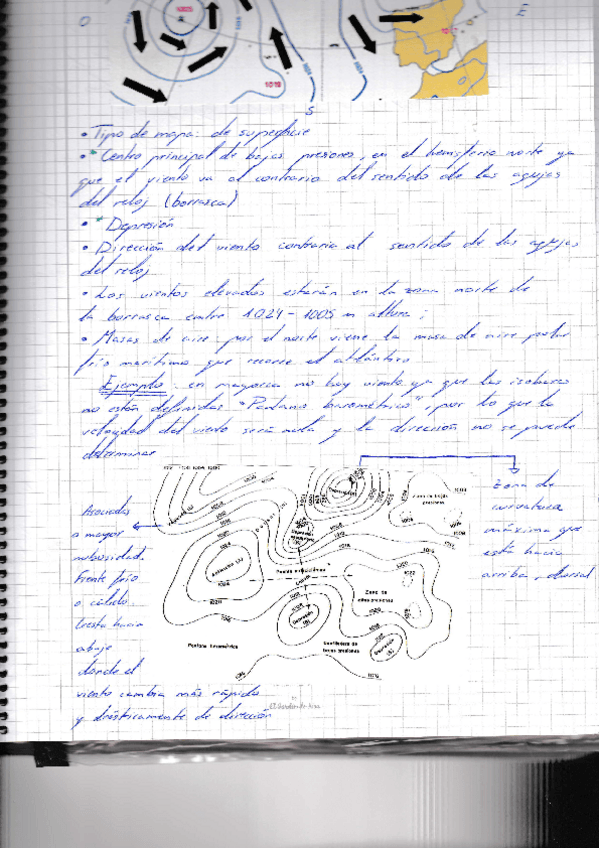 O
1005
E
1019
S
• Tipo de mapa: de superficie
• * Centro principal de bajas presiones, en el hemisferio norte ya
que el viento va al contrario del sentido de las agujas
del reloj (borrasca)
• * Depresión
• Dirección del viento contraria al sentido de las agujas
del reloj
• Los vientos elevados estarán en la zona norte de
la borrasca entre 1024-1005 m altura;
• Masas de aire: por el norte viene la masa de aire polar
frío marítimo que recorre el atlántico
Ejemplo: en mayorca no hay viento ya que las isobaras
no están definidas "Pantano barométrico", por lo que la
velocidad del viento será nula y la dirección no se puede
determinar
Zona de
curvatura
máxima que
está hacia
arriba, dorsal
Asociados
a mayor
nubosidad.
Frente frío
o cálido
(resta hacia
abajo
donde el
viento cambia más rápido
y drásticamente de dirección
Zona de bajas
presiones
Anticiclón (A)
Zona de
altas presiones
Depresión
(B)
Pantano barométrico
1008
1012
1016
1020
1024
1028